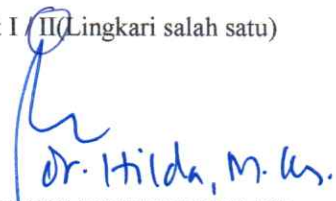 I / II(Lingkari salah satu)
Dr. Hilda, M. Kes.